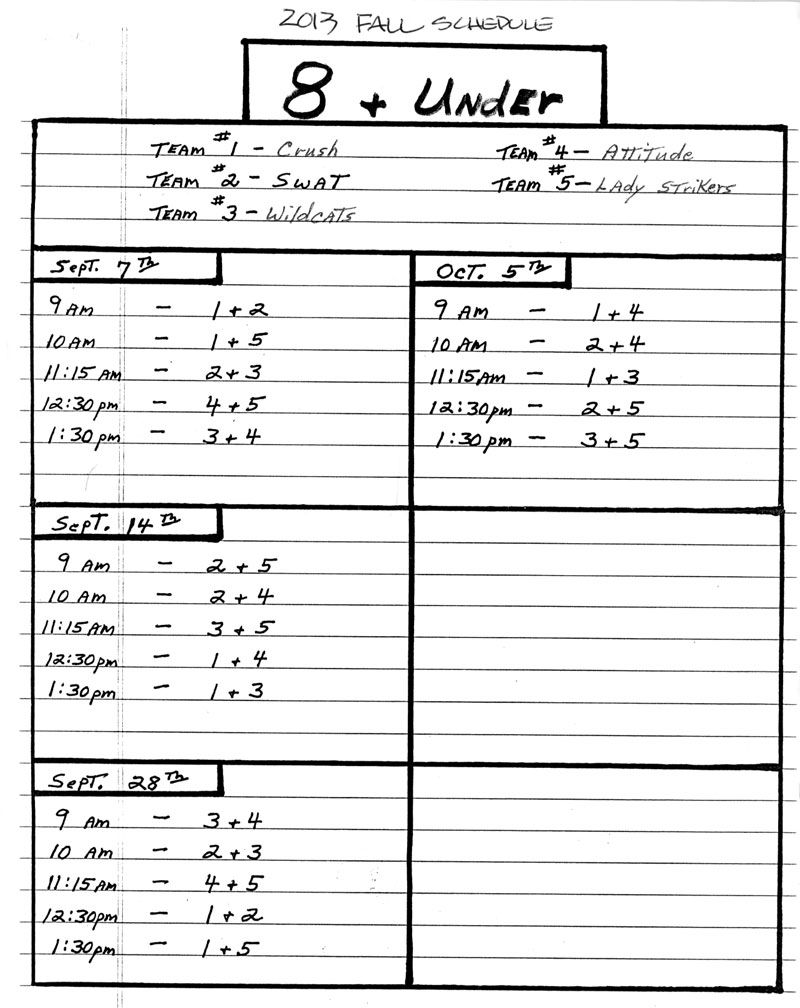 2013 FALL SCHEDULE
8 + Under
TEAM #1 - Crush
TEAM #2 - SWAT
TEAM #3 - Wildcats
TEAM #4 - Attitude
TEAM #5 - Lady Strikers
Sept. 7th
9 AM - 1 + 2
10 AM - 1 + 5
11:15 AM - 2 + 3
12:30 pm - 4 + 5
1:30 pm - 3 + 4
Sept. 14th
9 AM - 2 + 5
10 AM - 2 + 4
11:15 AM - 3 + 5
12:30 pm - 1 + 4
1:30 pm - 1 + 3
Sept. 28th
9 AM - 3 + 4
10 AM - 2 + 3
11:15 AM - 4 + 5
12:30 pm - 1 + 2
1:30 pm - 1 + 5
Oct. 5th
9 AM - 1 + 4
10 AM - 2 + 4
11:15 AM - 1 + 3
12:30 pm - 2 + 5
1:30 pm - 3 + 5